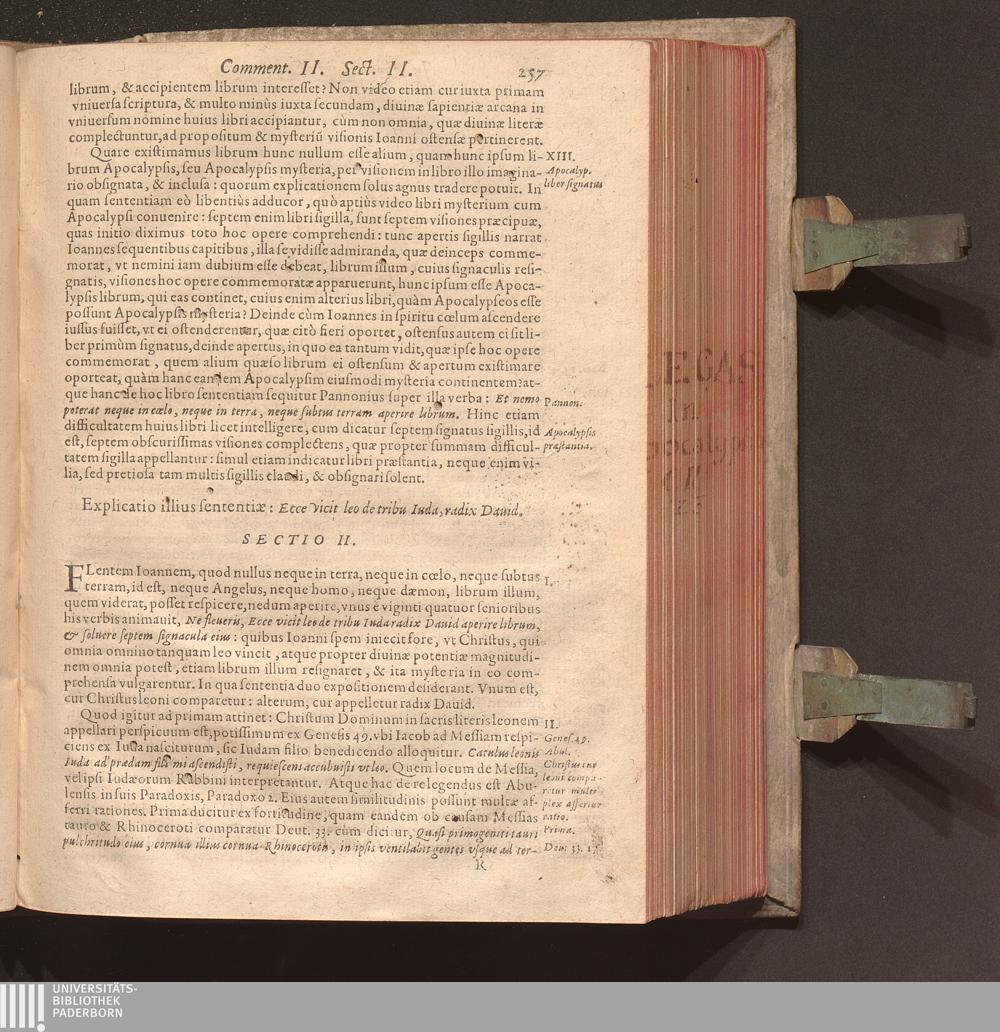 Comment. II. Sect. II. 257
librum, & accipientem librum interesset? Non video etiam cur iuxta primam
vniuersa scriptura, & multo minùs iuxta secundam, diuinæ sapientiæ arcana in
vniuersum nomine huius libri accipiantur, cùm non omnia, quæ diuinæ literæ
complectuntur, ad propositum & mysteriũ visionis Ioanni ostensæ pertinerent.
Quare existimamus librum hunc nullum esse alium, quam hunc ipsum li-
brum Apocalypsis, seu Apocalypsis mysteria, per visionem in libro illo imagina-
rio obsignata, & inclusa: quorum explicationem solus agnus tradere potuit. In
quam sententiam eò libentiùs adducor, quò aptiùs video libri mysterium cum
Apocalypsi conuenire: septem enim libri sigilla, sunt septem visiones præcipuæ,
quas initio diximus toto hoc opere comprehendi: tunc apertis sigillis narrat
Ioannes sequentibus capitibus, illa se vidisse admiranda, quæ deinceps comme-
morat, vt nemini iam dubium esse debeat, librum illum, cuius signaculis resi-
gnatis, visiones hoc opere commemoratæ apparuerunt, hunc ipsum esse Apoca-
lypsis librum, qui eas continet, cuius enim alterius libri, quàm Apocalypseos esse
possunt Apocalypsis mysteria? Deinde cùm Ioannes in spiritu cœlum ascendere
iussus fuisset, vt ei ostenderentur, quæ citò fieri oportet, ostensus autem ei sit li-
ber primùm signatus, deinde apertus, in quo ea tantum vidit, quæ ipse hoc opere
commemorat, quem alium quæso librum ei ostensum & apertum existimare
oporteat, quàm hanc eandem Apocalypsim eiusmodi mysteria continentem? at-
que hanc de hoc libro sententiam sequitur Pannonius super illa verba: Et nemo
poterat neque in cœlo, neque in terra, neque subtus terram aperire librum. Hinc etiam
difficultatem huius libri licet intelligere, cum dicatur septem signatus sigillis, id
est, septem obscurissimas visiones complectens, quæ propter summam difficul-
tatem sigilla appellantur: simul etiam indicatur libri præstantia, neque enim vi-
lia, sed pretiosa tam multis sigillis claudi, & obsignari solent.
XIII.
Apocalyp.
liber signatus
Pannon.
Apocalypsis
præstantia.
Explicatio illius sententiæ: Ecce vicit leo de tribu Iuda, radix Dauid.
SECTIO II.
FLentem Ioannem, quod nullus neque in terra, neque in cœlo, neque subtus
terram, id est, neque Angelus, neque homo, neque dæmon, librum illum,
quem viderat, posset respicere, nedum aperire, vnus è viginti quatuor senioribus
his verbis animauit, Ne fleueris, Ecce vicit leo de tribu Iuda radix Dauid aperire librum,
& soluere septem signacula eius: quibus Ioanni spem iniecit fore, vt Christus, qui
omnia omnino tanquam leo vincit, atque propter diuinæ potentiæ magnitudi-
nem omnia potest, etiam librum illum resignaret, & ita mysteria in eo com-
prehensa vulgarentur. In qua sententia duo expositionem desiderant. Vnum est,
cur Christus leoni comparetur: alterum, cur appelletur radix Dauid.
Quod igitur ad primam attinet: Christum Dominum in sacris literis leonem
appellari perspicuum est, potissimum ex Genesis 49. vbi Iacob ad Messiam respi-
ciens ex Iuda nasciturum, sic Iudam filio benedicendo alloquitur. Catulus leonis
Iuda ad prædam fili mi ascendisti, requiescens accubuisti vt leo. Quem locum de Messia,
vel ipsi Iudæorum Rabbini interpretantur. Atque hac de re legendus est Abu-
lensis in suis Paradoxis, Paradoxo 2. Eius autem similitudinis possunt multæ af-
ferri rationes. Prima ducitur ex fortitudine, quam eandem ob causam Messias
tauro & Rhinoceroti comparatur Deut. 33. cùm dicitur, Quasi primogeniti tauri
pulchritudo eius, cornua illius cornua Rhinocerotis, in ipsis ventilabit gentes vsque ad ter-
R
I.
II.
Genes. 49.
Abul.
Christus cur
leoni compa-
retur multi-
plex affertur
ratio.
Prima.
Deut. 33. 17
UNIVERSITÄTS-
BIBLIOTHEK
PADERBORN